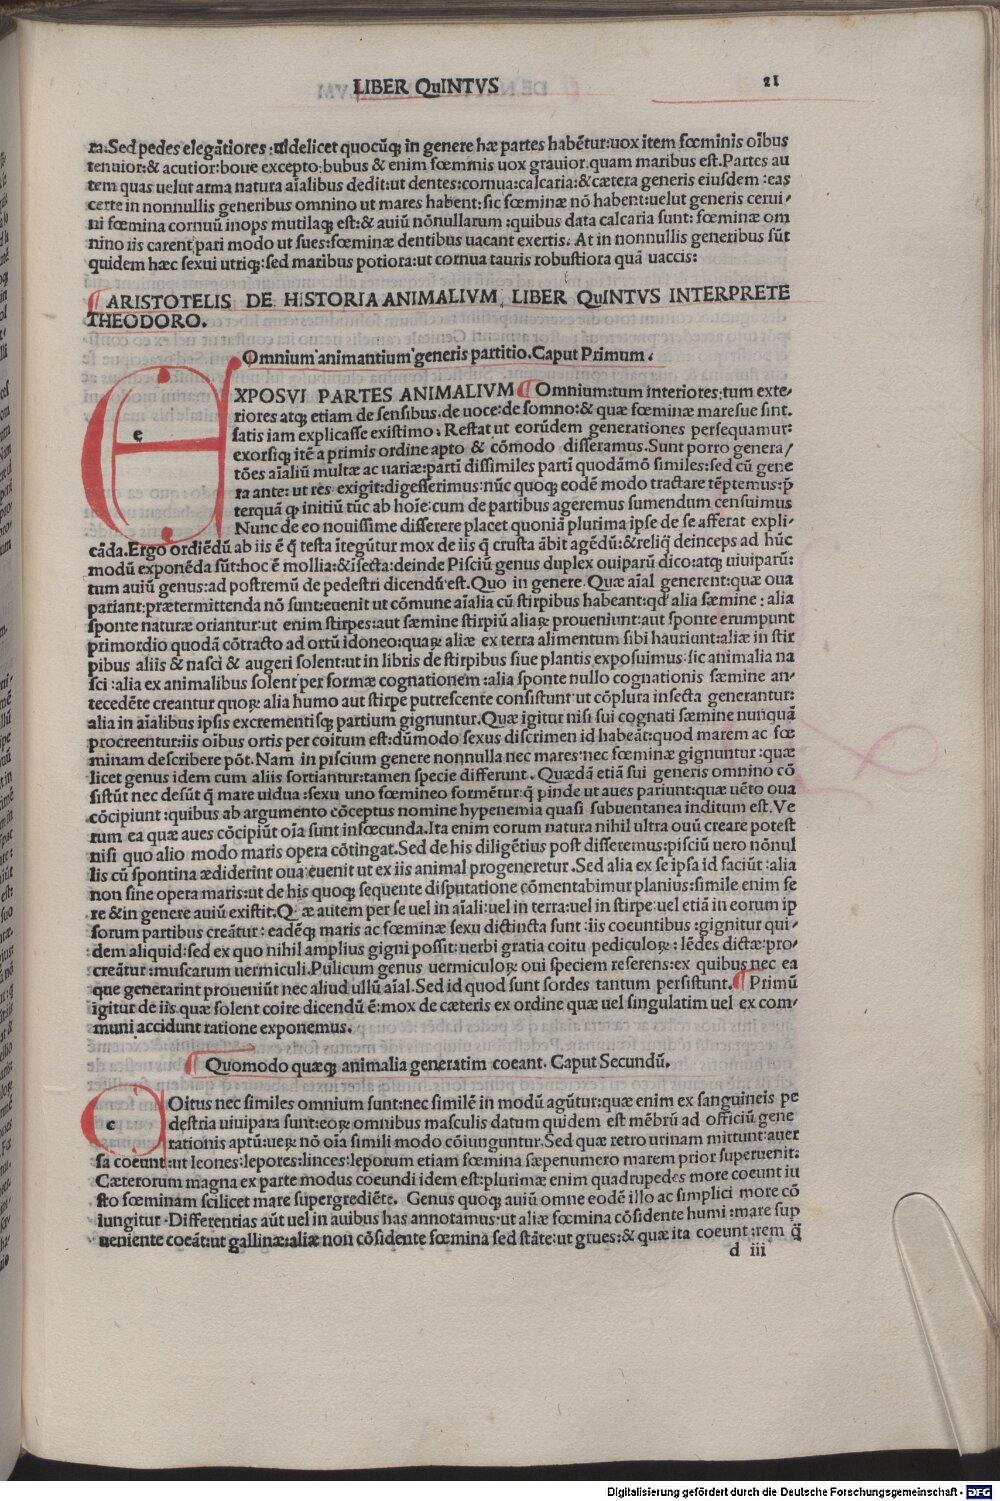 LIBER QuINTVS
21
ra.Sed pedes elegãtiores :uidelicet quocũq; in genere hæ partes habẽtur:uox item fœminis oĩbus
tenuior:& acutior:boue excepto:bubus & enim fœminis uox grauior quam maribus est.Partes au
tem quas uelut arma natura aĩalibus dedit:ut dentes:cornua:calcaria:&cætera generis eiusdem :eas
certe in nonnullis generibus omnino ut mares habent:sic fœminæ nõ habent:uelut generis cerui-
ni fœmina cornuũ inops mutilaq; est:& auiũ nõnullarum :quibus data calcaria sunt: fœminæ om
nino iis carent pari modo ut sues:fœminæ dentibus uacant exertis. At in nonnullis generibus sũt
quidem hæc sexui utriq;:sed maribus potiora:ut cornua tauris robustiora quã uaccis:
ARISTOTELIS DE HISTORIA ANIMALIVM, LIBER QuINTVS INTERPRETE
THEODORO.
Omnium animantium generis partitio.Caput Primum.
e
XPOSVI PARTES ANIMALIVM Omnium:tum interiores:tum exte-
riores atq; etiam de sensibus.de uoce:de somno:& quæ fœminæ maresue sint.
satis iam explicasse existimo: Restat ut eorũdem generationes persequamur:
exorsiq; itẽ a primis ordine apto & cõmodo disseramus.Sunt porro genera/
tões aĩaliũ multæ ac uariæ:partĩ dissimiles partĩ quodãmõ similes:sed cũ gene
ra ante: ut res exigit:digesserimus:nũc quoq; eodẽ modo tractare tẽptemus:p̃
terquã q; initiũ tũc ab hoĩe:cum de partibus ageremus sumendum censuimus
Nunc de eo nouissime disserere placet quoniã plurima ipse de se afferat expli-
cãda.Ergo ordiẽdũ ab iis ẽ q̃ testa ĩtegũtur mox de iis q̃ crusta ãbit agẽdũ:&reliq̃ deinceps ad hũc
modũ exponẽda sũt:hoc ẽ mollia:&ĩsecta:deinde Pisciũ genus duplex ouiparũ dico:atq; uiuiparũ:
tum auiũ genus:ad postremũ de pedestri dicendũ est.Quo in genere.Quæ aĩal generent:quæ oua
pariant:prætermittenda nõ sunt:euenit ut cõmune aĩalia cũ stirpibus habeant:qd alia sæmine : alia
sponte naturæ oriantur:ut enim stirpes:aut sæmine stirpiũ aliaꝝ proueniunt:aut sponte erumpunt
primordio quodã cõtracto ad ortũ idoneo:quaꝝ aliæ ex terra alimentum sibi hauriunt:aliæ in stir
pibus aliis & nasci & augeri solent:ut in libris de stirpibus siue plantis exposuimus.sic animalia na
sci :alia ex animalibus solent per formæ cognationem :alia sponte nullo cognationis sæmine an-
tecedẽte creantur quoꝝ alia humo aut stirpe putrescente consistunt ut cõplura insecta generantur:
alia in aĩalibus ipsis excrementisq; partium gignuntur.Quæ igitur nisi sui cognati sæmine nunquã
procreentur:iis oĩbus ortis per coitum est:dũmodo sexus discrimen id habeãt:quod marem ac fœ
minam describere põt.Nam in piscium genere nonnulla nec mares:nec fœminæ gignuntur :quæ
licet genus idem cum aliis sortiantur:tamen specie differunt. Quædã etiã sui generis omnino cõ
sistũt nec desũt q̃ mare uidua :sexu uno fœmineo formẽtur:q̃ pinde ut aues pariunt:quæ uẽto oua
cõcipiunt :quibus ab argumento cõceptus nomine hypenemia quasi subuentanea inditum est.Ve
rum ea quæ aues cõcipiũt oĩa sunt infœcunda.Ita enim eorum natura nihil ultra ouũ creare potest
nisi quo alio modo maris opera cõtingat.Sed de his diligẽtius post disseremus:pisciũ uero nõnul
lis cũ spontina ædiderint oua euenit ut ex iis animal progeneretur .Sed alia ex se ipsa id faciũt :alia
non sine opera maris:ut de his quoq; sequente disputatione cõmentabimur planius:simile enim se
re &in genere auiũ existit.Quæ autem per se uel in aĩali:uel in terra:uel in stirpe:uel etiã in eorum ip
sorum partibus creãtur: eadẽq; maris ac fœminæ sexu distincta sunt :iis coeuntibus :gignitur qui-
dem aliquid:sed ex quo nihil amplius gigni possit:uerbi gratia coitu pediculoꝝ: lẽdes dictæ:pro-
creãtur :muscarum uermiculi.Pulicum genus uermiculoꝝ oui speciem referens:ex quibus nec ea
que generarint proueniũt nec aliud ullũ aĩal.Sed id quod sunt sordes tantum persistunt. Primũ
igitur de iis quæ solent coire dicendũ ẽ:mox de cæteris ex ordine quæ uel singulatim uel ex com-
muni accidunt ratione exponemus.
Quomodo quæq; animalia generatim coeant. Caput Secundũ.
c
Oitus nec similes omnium sunt:nec similẽ in modũ agũtur:quæ enim ex sanguineis pe
destria uiuipara sunt:eoꝝ omnibus masculis datum quidem est mẽbrũ ad officiũ gene
rationis aptũ:ueꝝ nõ oĩa simili modo cõiunguntur.Sed quæ retro urinam mittunt:auer
sa coeunt:ut leones:lepores:linces:leporum etiam fœmina sæpenumero marem prior superuenit:
Cæterorum magna ex parte modus coeundi idem est:plurimæ enim quadrupedes more coeunt iu
sto fœminam scilicet mare supergrediẽte. Genus quoq; auiũ omne eodẽ illo ac simplici more cõ
iungitur.Differentias aũt uel in auibus has annotamus:ut aliæ fœmina cõsidente humi :mare sup
ueniente coeãt:ut gallinæ:aliæ non cõsidente fœmina sed stãte:ut grues:& quæ ita coeunt :rem q̃
d iii
Digitalisierung gefördert durch die Deutsche Forschungsgemeinschaft - DFG